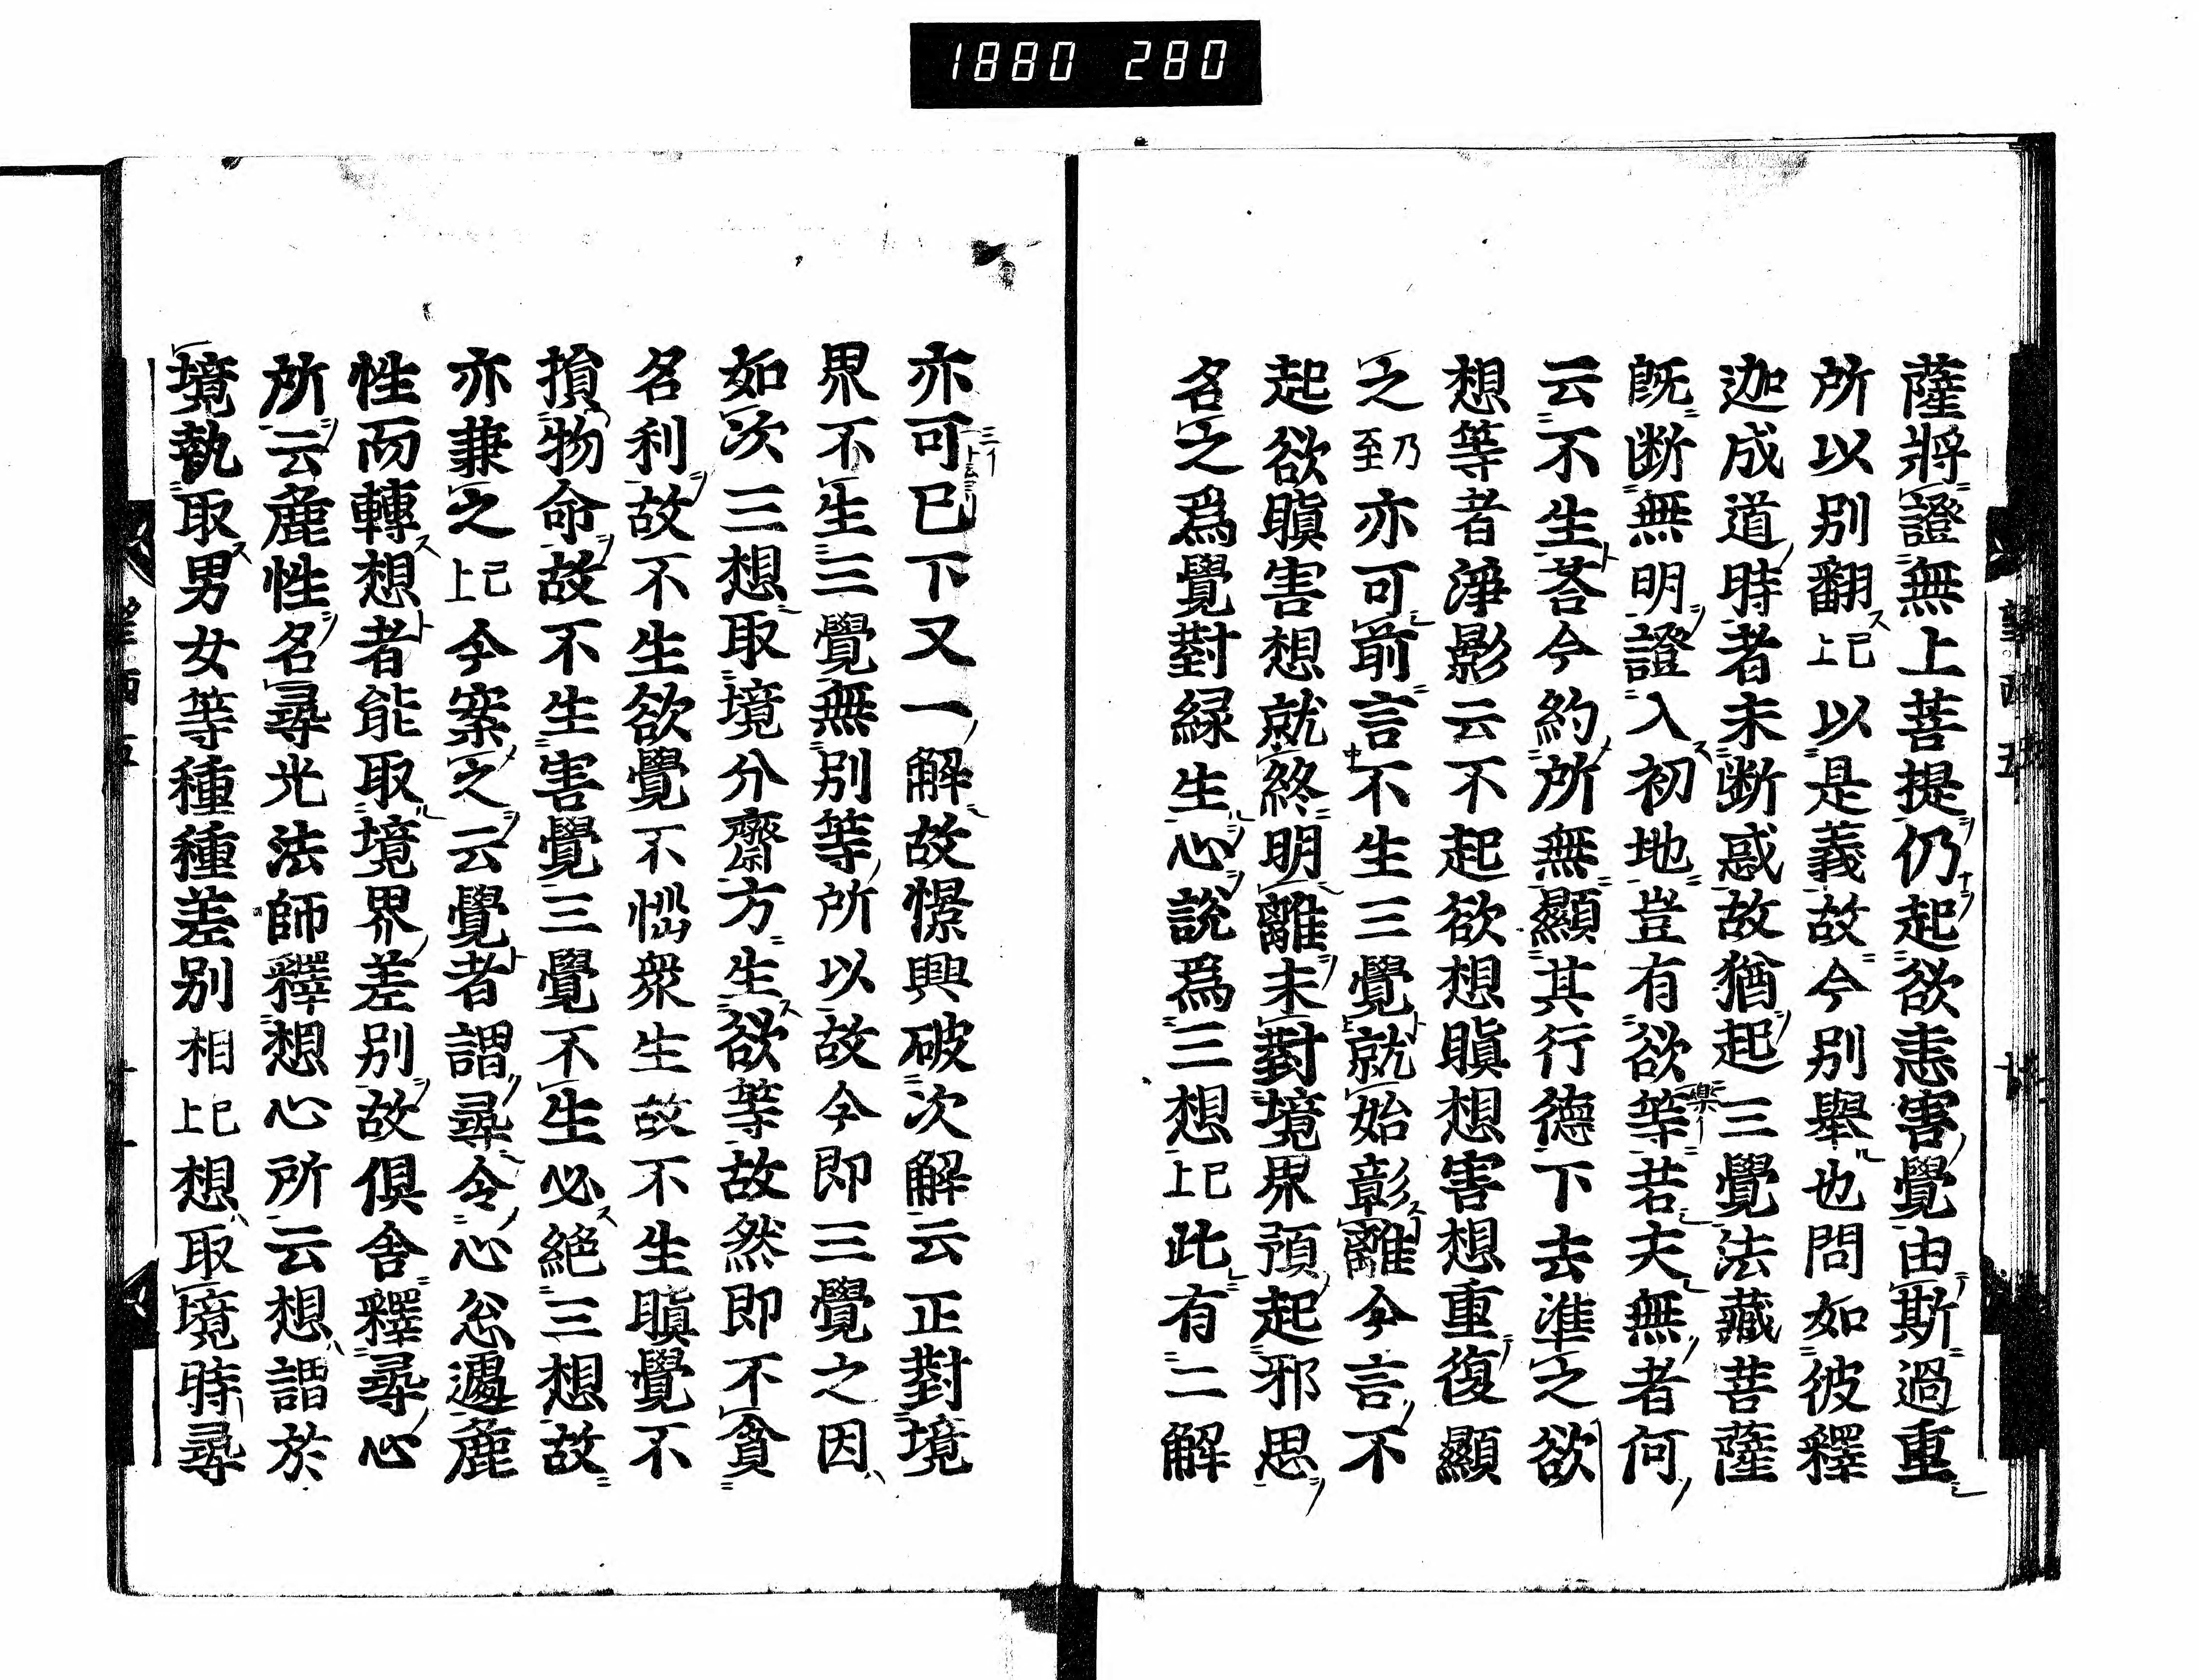 1880 280
薩將證無上菩提仍起欲恚害覺由斯過重
所以別翻已上以是義故今別舉也問如彼釋
迦成道時者未断惑故猶起三覺法藏菩薩
既断無明證入初地豈有欲等若夫無者何
云不生荅今約所無顯其行德下去準之欲
想等者淨影云不起欲想瞋想害想重復顯
之乃至亦可前言不生三覺就始彰離今言不
起欲瞋害想就終明離未對境界預起邪思
名之爲覺對緑生心說爲三想已上此有二解
亦可已下又一解故憬興破次解云正對境
界不生三覺無別等所以故今即三覺之因
如次三想取境分齊方生欲等故然即不貪
名利故不生欲覺不惱衆生故不生瞋覺不
損物命故不生害覺三覺不生必絕三想故
亦兼之已上今案之云覺者謂尋令心忩遽麁
性而轉想者能取境界差別故俱舍釋尋心
所云麁性名尋光法師釋想心所云想謂於
境執取男女等種種差別相已上想取境時尋